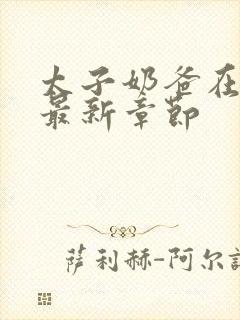 太子奶爸在
最新章节
萨利赫-阿尔